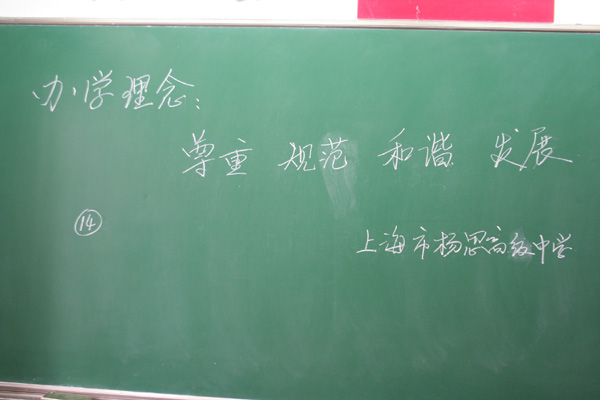 办学理念：
尊重 规范 和谐 发展
⑭
上海市杨思高级中学